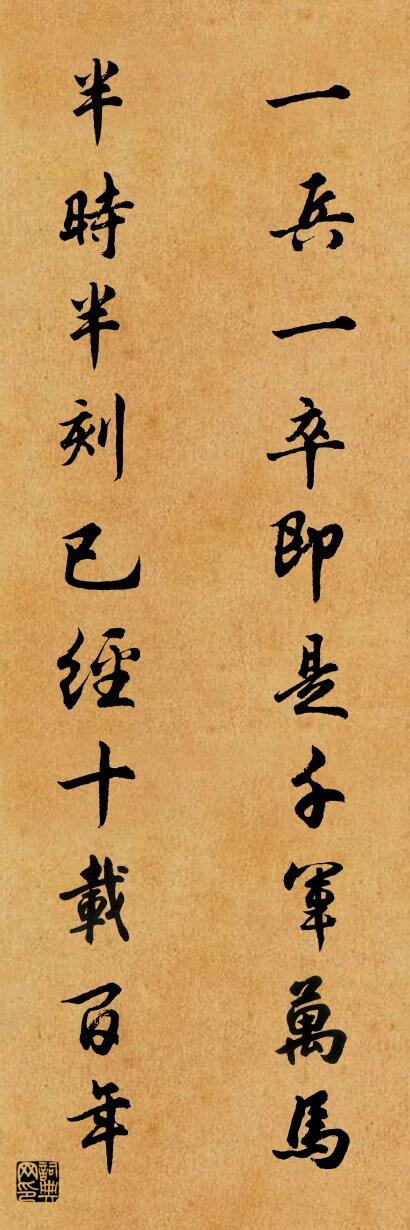 一兵一卒即是千軍萬馬
半時半刻已經十載百年
詞典网印